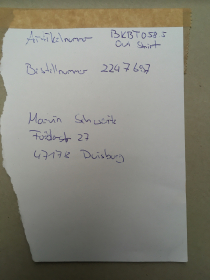 Artikelnummer BKBT058 S
Gun Shirt
Bestellnummer 2247697
Marvin Schwarz
27
47178 Duisburg